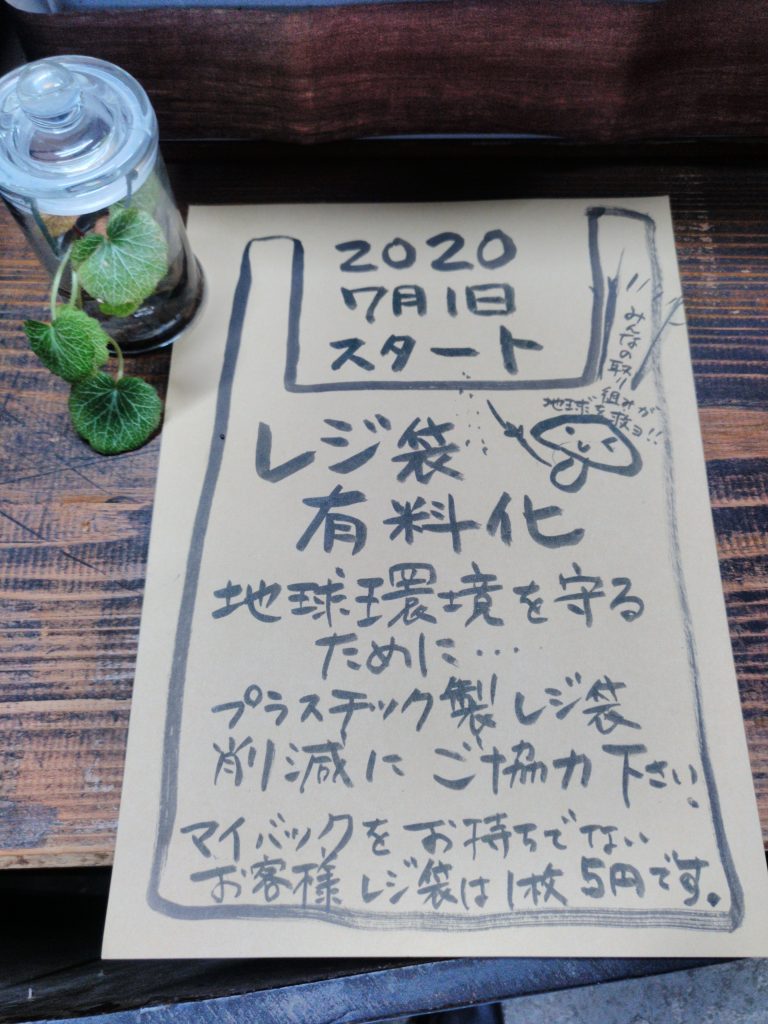 2020
7月1日
スタート
みんなの取り組みが
地球を救ヨ!!
レジ袋
有料化
地球環境を守る
ために…
プラスチック製レジ袋
削減にご協力下さい。
マイバックをお持ちでない
お客様レジ袋は1枚5円です。